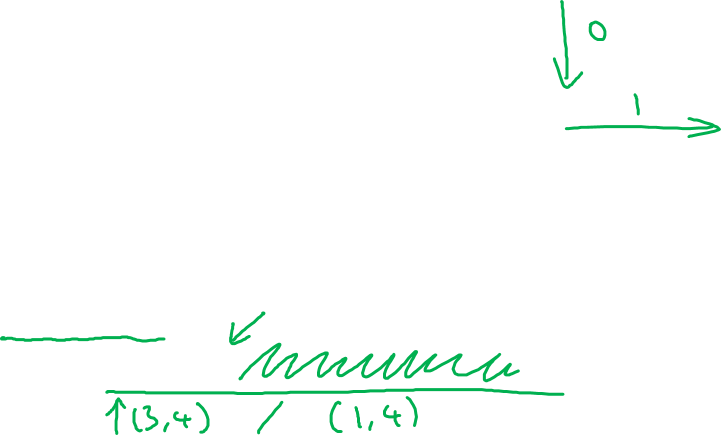 0
1
(3,4) / (1,4)